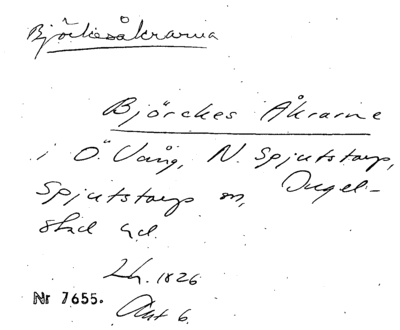 Björkesåkrarna
Björckes Åkrarne
i Ö. Vång, N. Spjutstorp,
Spjutstorps sn, Ingel-
stad hd
Lh. 1826
Nr 7655. Akt 6.